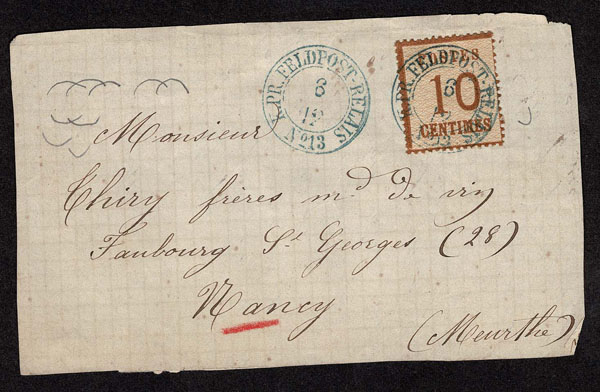 K.PR.FELDPOST-RELAIS
8
12
No 13
POSTES
10
CENTIMES
K.PR.FELDPOST-RELAIS
8
12
Monsieur
Thiry frères md de vin
Faubourg St Georges (28)
Nancy
(Meurthe)